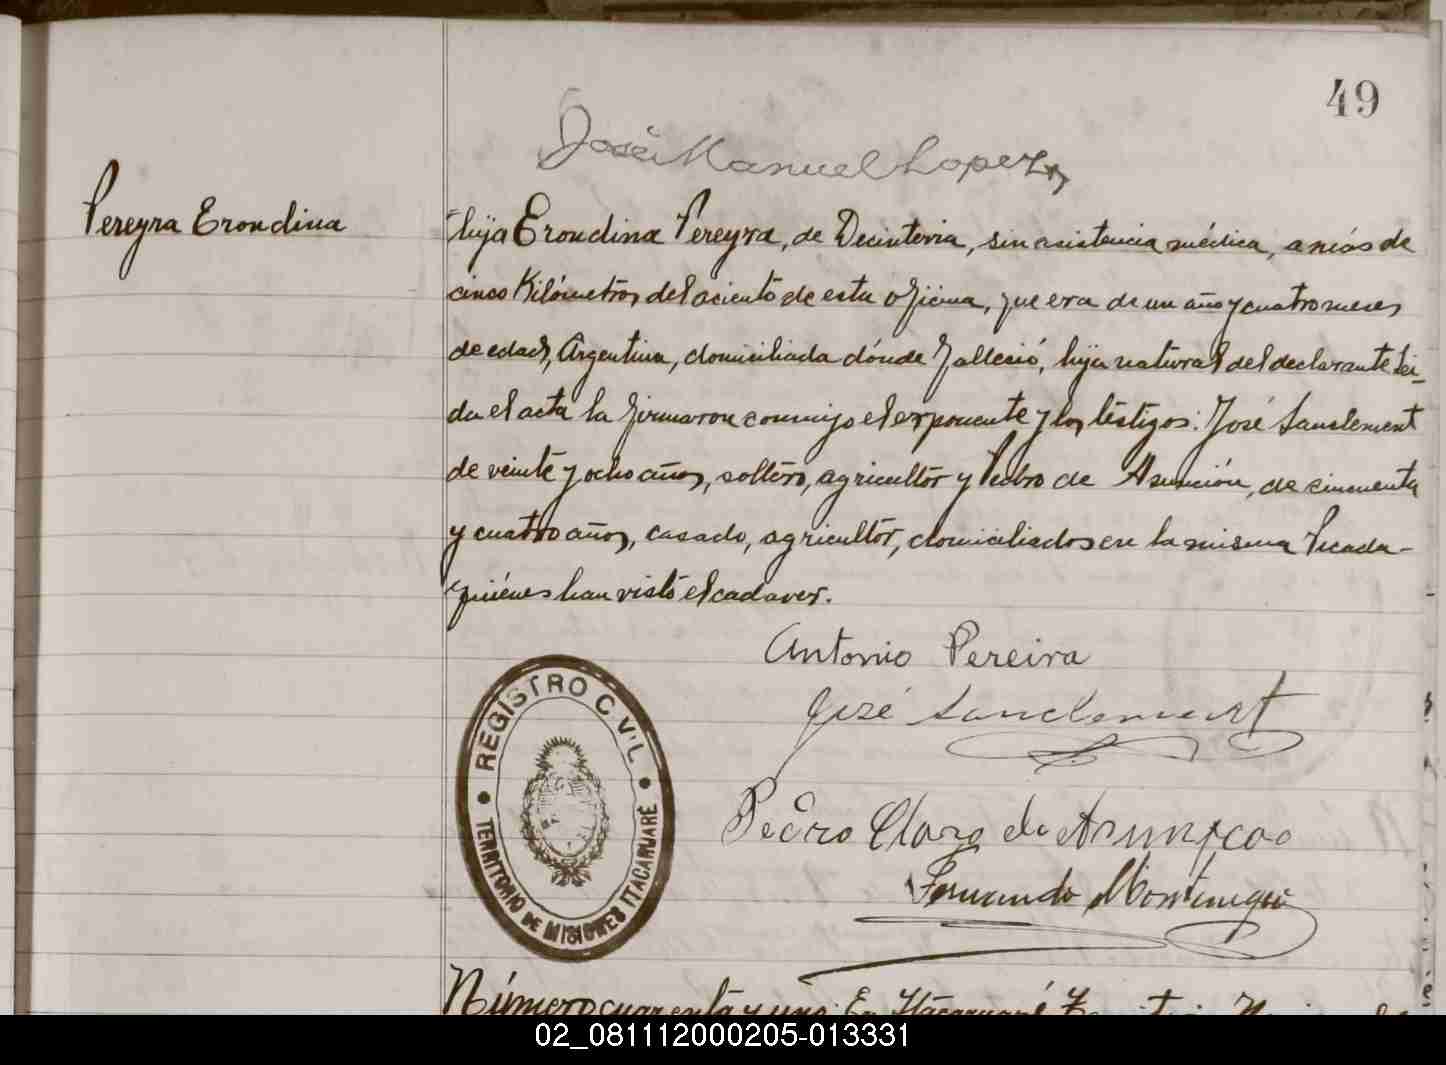 49
José Manuel Lopez
Pereyra Erondina
hija Erondina Pereyra, de Decinteria, sin asistencia médica, a más de
cinco Kilómetros del asiento de esta oficina, que era de un año y cuatro meses
de edad, Argentina, domiciliada dónde falleció, hija natural del declarante Lei-
da el acta la firmaron conmigo el exponente y los testigos: José Sanclement
de veinte y ocho años, soltero, agricultor y Pedro de Asunción, de cincuenta
y cuatro años, casado, agricultor, domiciliados en la misma Picada-
quiénes han visto el cadaver.
Antonio Pereira
José Sanclement
Pedro Claro de Asumpcao
Fernando Montenegro
REGISTRO CIVIL
TERRITORIO DE MISIONES ITACARUARÉ
Número cuarenta y uno: En Itacaruaré
02_081112000205-013331